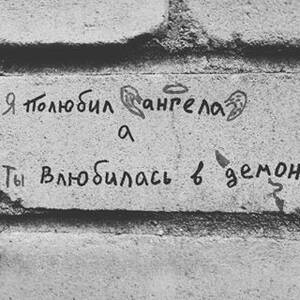 Я полюбил ангела
а
Ты влюбилась в демон